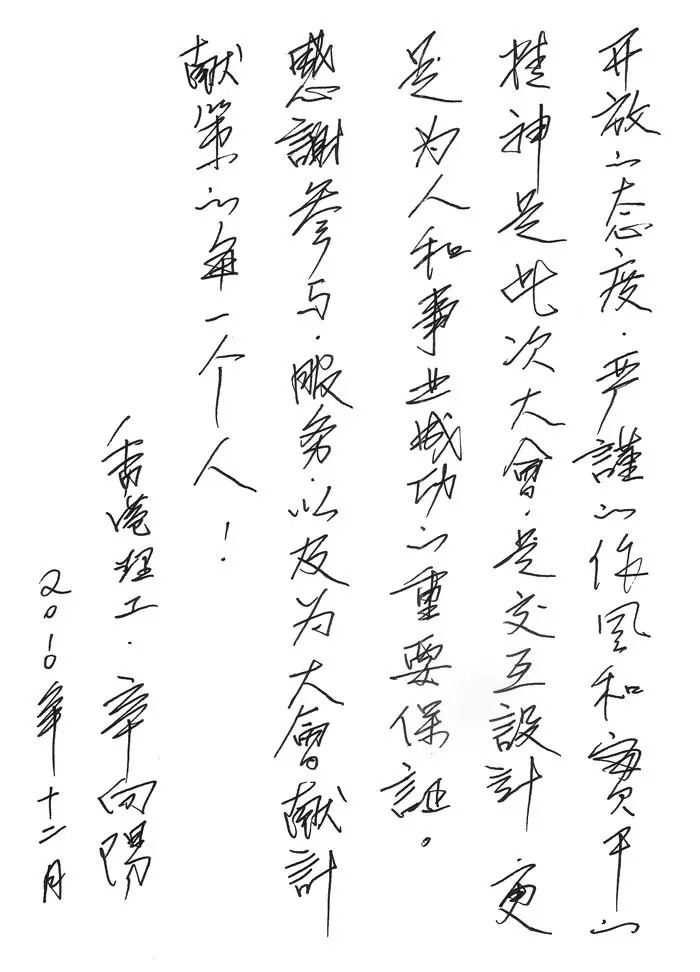 开放的态度．严謹的作風和實干的
精神是此次大會．是交互設計 更
是为人和事业成功的重要保証。
感謝参与．服务．以及为大會献計
献策的每一个人！
香港理工．辛向陽
2010年十二月